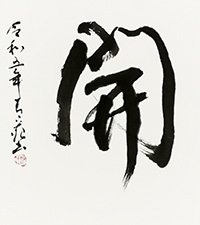 開
令和五年